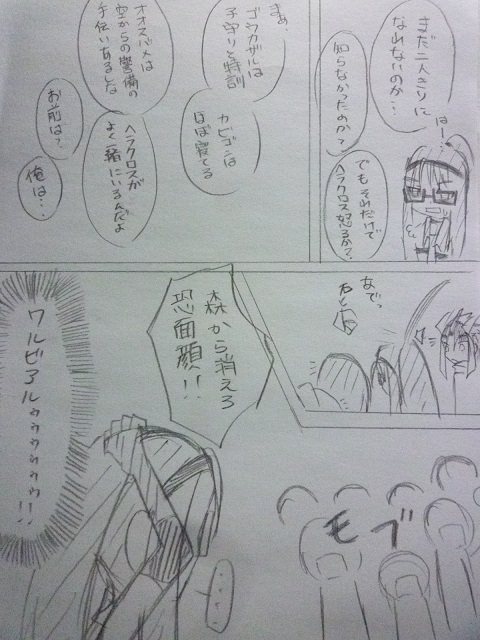 まだ二人きりに
なれないのか‥
はー‥
知らなかったのか?
でもそれだけで
ヘラクロス怒るか?
まぁ、
ゴウカザルは
子守りと特訓
カビゴンは
ほぼ寝てる
オオスバメは
空からの警備の
手伝いあるしな
ヘラクロスが
よく一緒にいるんだよ
お前は?
俺は‥
なでっ
森から消えろ
恐面顔!!
ワルビアルゥゥゥゥゥゥ!!
モブ